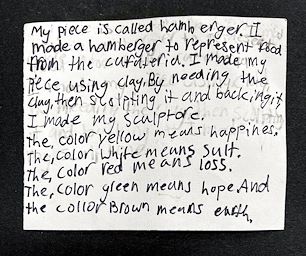 My piece is called hamb erger I
made a hamberger to represent food
from the cafateria. I made my
piece using clay, By needing the
clay, then sculpting it and backing it
I made my sculptore.
The, color yellow means happines.
The, color white means sult.
The, color red means loss.
The, color green means hope. And
the collor Brown means earth.